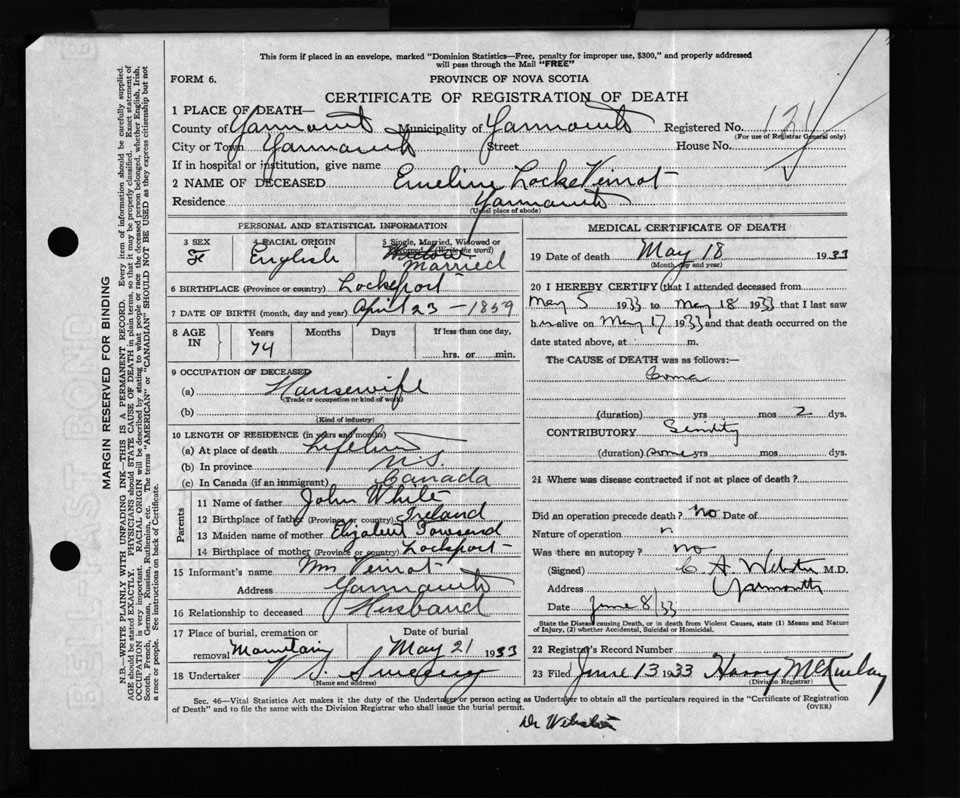 This form if placed in an envelope, marked "Dominion Statistics—Free, penalty for improper use, $300," and properly addressed
will pass through the Mail "FREE"
FORM 6.
PROVINCE OF NOVA SCOTIA
CERTIFICATE OF REGISTRATION OF DEATH
1 PLACE OF DEATH—
County of Yarmouth Municipality of Yarmouth Registered No.
(For use of Registrar General only)
City or Town Yarmouth Street House No.
If in hospital or institution, give name
2 NAME OF DECEASED Emeline Locke Veinot
Residence Yarmouth
(Usual place of abode)
PERSONAL AND STATISTICAL INFORMATION
3 SEX F
4 RACIAL ORIGIN English
5 Single, Married, Widowed or Divorced (Write the word)
Married
6 BIRTHPLACE Lockeport
7 DATE OF BIRTH (month, day and year) April 23 - 1859
8 AGE IN Years Months Days If less than one day,
74 hrs. or min.
9 OCCUPATION OF DECEASED
(a) Housewife
(Trade or occupation or kind of work)
(b)
(Kind of industry)
10 LENGTH OF RESIDENCE (in years and months)
(a) At place of death Lifetime
(b) In province N.S.
(c) In Canada (if an immigrant) Canada
Parents
11 Name of father John White
12 Birthplace of father (Province or country) Ireland
13 Maiden name of mother Elizabeth Townsend
14 Birthplace of mother (Province or country) Lockeport
15 Informant's name Wm Veinot
Address Yarmouth
16 Relationship to deceased Husband
17 Place of burial, cremation or removal Mountain
Date of burial May 21 1933
18 Undertaker V S Sweeny
(Name and address)
MEDICAL CERTIFICATE OF DEATH
19 Date of death May 18 1933
(Month day and year)
20 I HEREBY CERTIFY that I attended deceased from
May 5 1933 to May 18 1933 that I last saw
h alive on May 17 1933 and that death occurred on the
date stated above, at m.
The CAUSE of DEATH was as follows:—
Coma
(duration) yrs mos 2 dys.
CONTRIBUTORY Senility
(duration) some yrs mos dys.
21 Where was disease contracted if not at place of death?
Did an operation precede death? No Date of
Nature of operation n
Was there an autopsy? no
(Signed) C A. Webster M.D.
Address Yarmouth
Date June 8/33
State the Disease causing Death, or in death from Violent Causes, state (1) Means and Nature
of Injury, (2) whether Accidental, Suicidal or Homicidal.
22 Registrar's Record Number
23 Filed June 13 1933
(Division Registrar)
Sec. 46—Vital Statistics Act makes it the duty of the Undertaker or person acting as Undertaker to obtain all the particulars required in the "Certificate of Registration
of Death" and to file the same with the Division Registrar who shall issue the burial permit.
(OVER)
Dr Webster
MARGIN RESERVED FOR BINDING
N.B.—WRITE PLAINLY WITH UNFADING INK—THIS IS A PERMANENT RECORD. Every item of information should be carefully supplied.
AGE should be stated EXACTLY. PHYSICIANS should STATE CAUSE OF DEATH in plain terms, so that it may be properly classified. Exact statement of
OCCUPATION is very important. RACIAL ORIGIN will be described by stating to what people or race the deceased person belonged, whether English, Irish,
Scotch, French, German, Russian, Ruthenian, etc. The terms "AMERICAN" or "CANADIAN" SHOULD NOT BE USED as they express citizenship but not
a race or people. See instructions on back of Certificate.